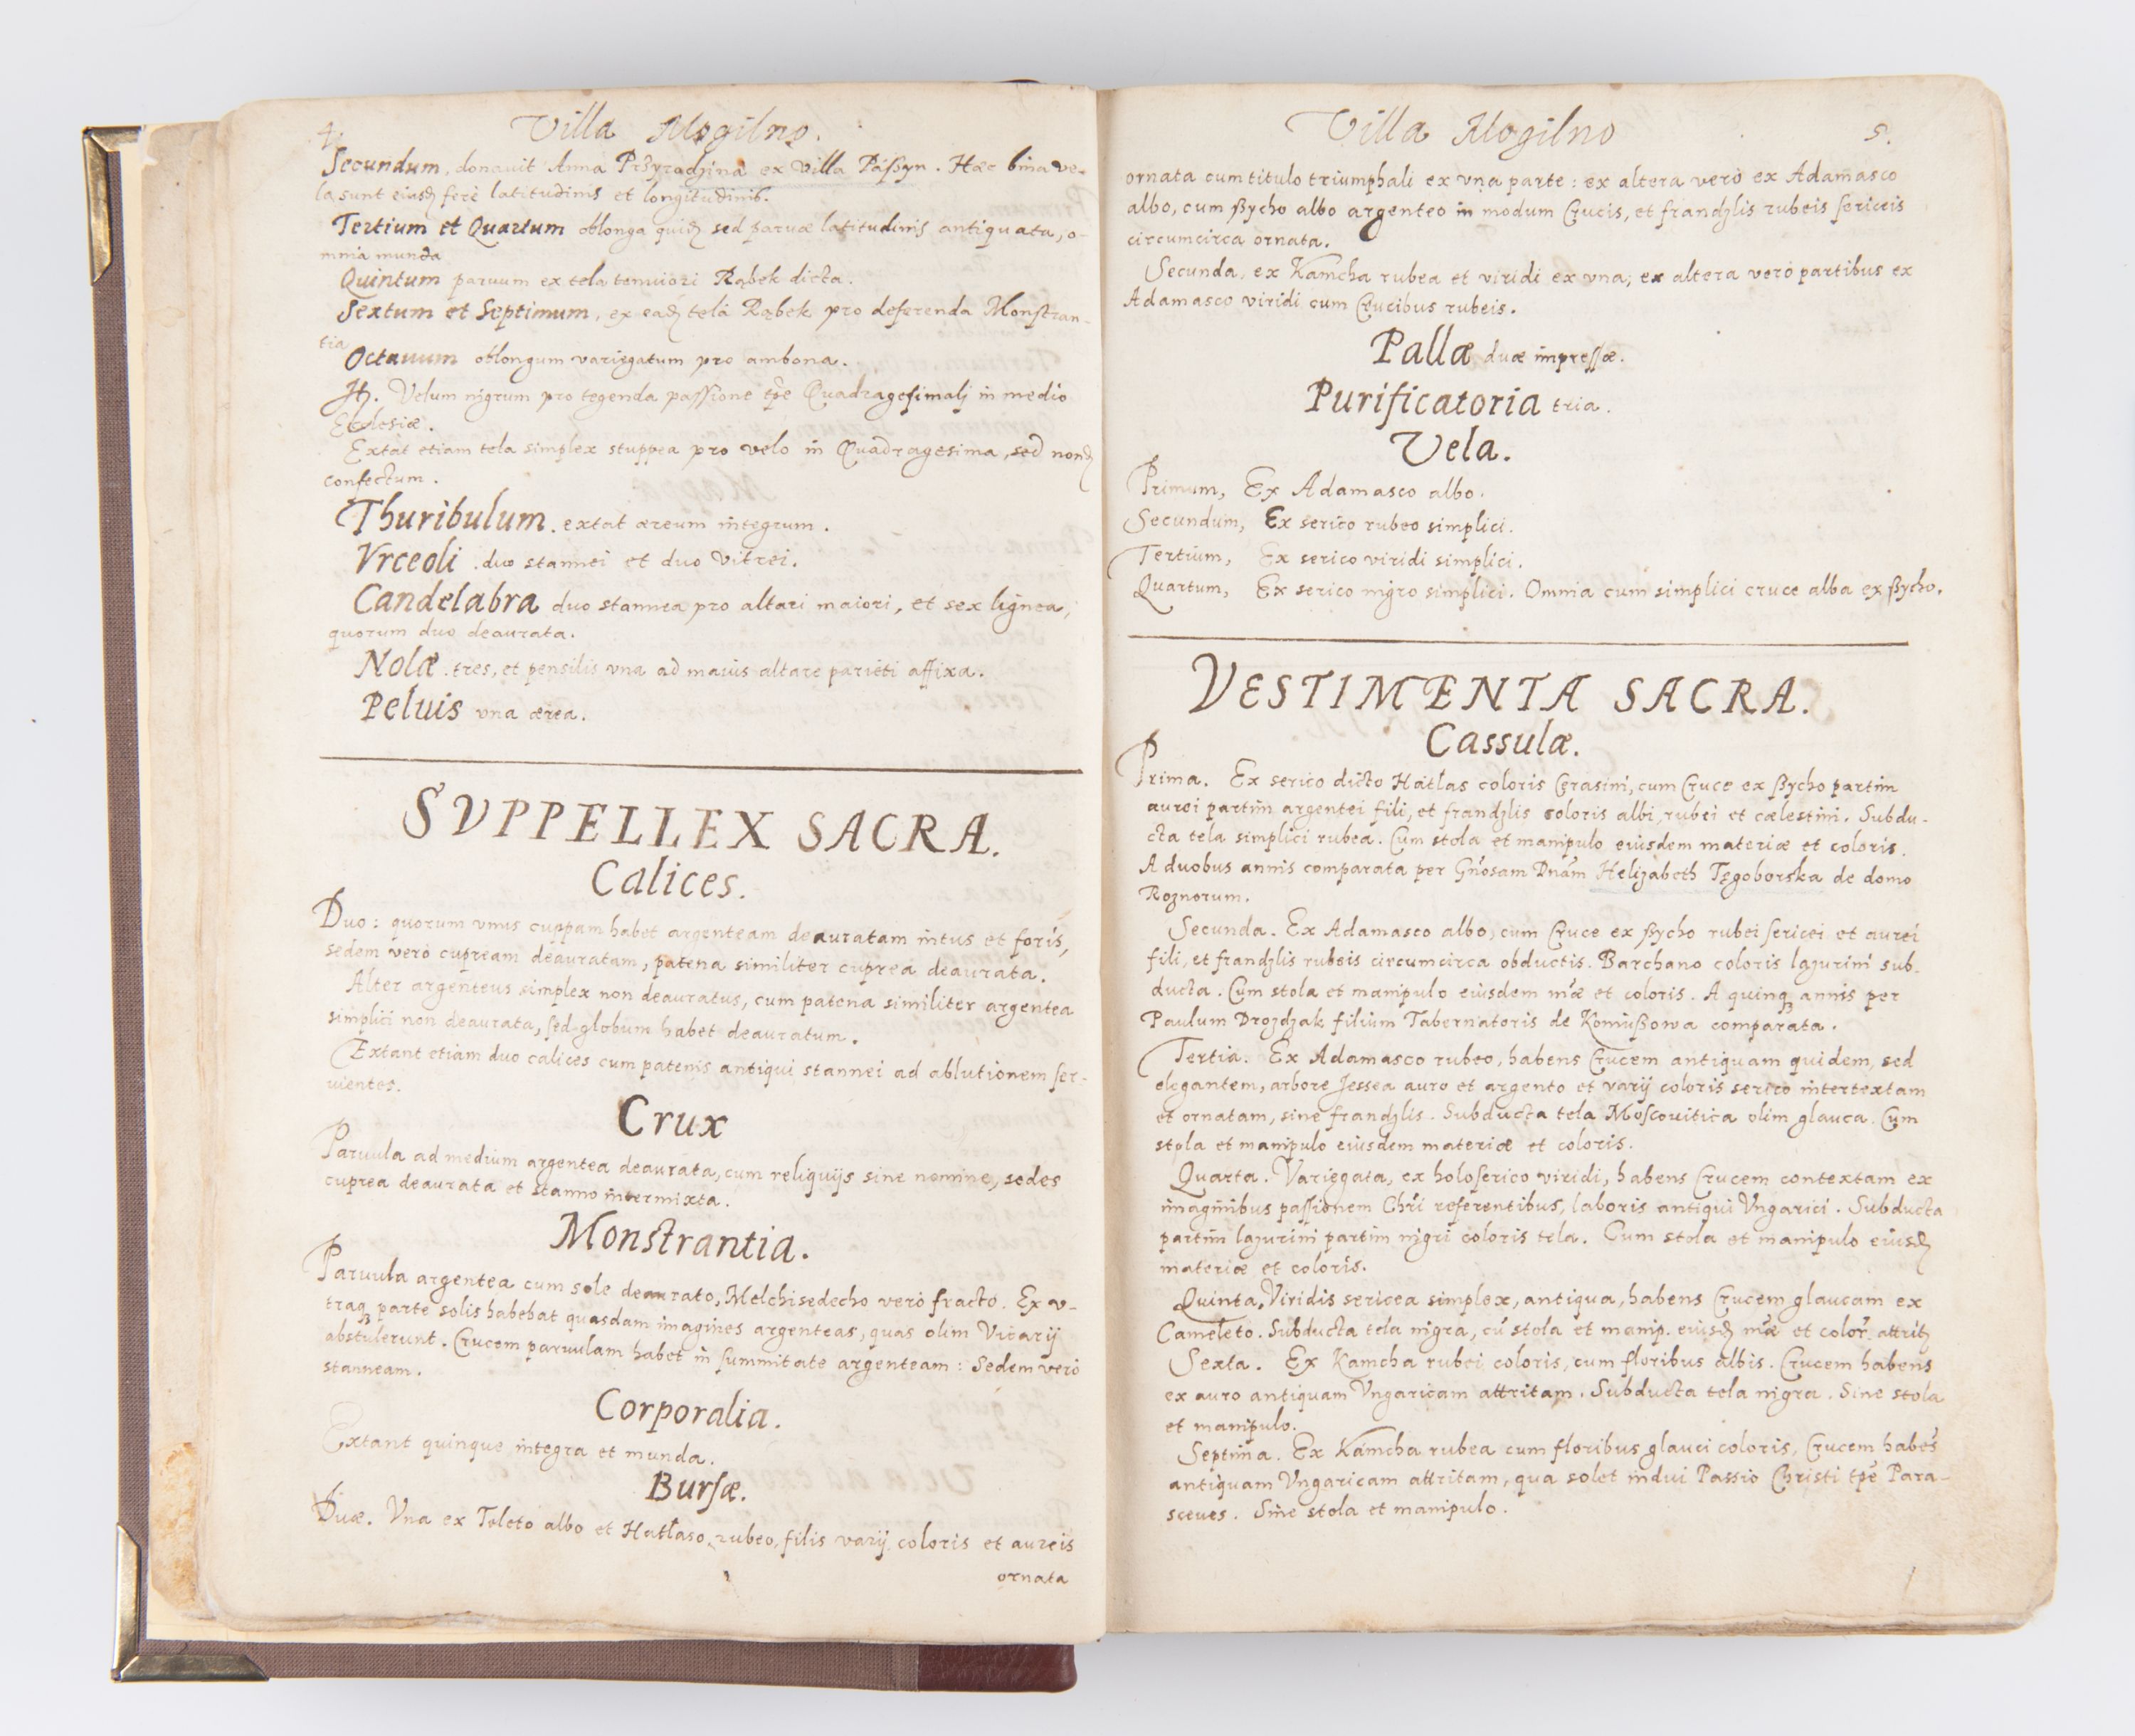 4.
Villa Mogilno.
Secundum, donauit Anna Przyradzina ex villa Paſzyn. Hæc bina ve-
la sunt eiusꝫ ferè latitudinis et longitudinis.
Tertium et Quartum oblonga quidꝫ sed paruæ latitudinis antiquata, o-
mnia munda
Quintum paruum ex tela tenuiori Rąbek dicta.
Sextum et Septimum, ex eadꝫ tela Rąbek pro deferenda Monſtran-
tia
Octauum oblongum variegatum pro ambona.
Itꝫ. Velum nigrum pro tegenda paſſione tp̄e Quadragesimalj in medio
Ecclesiæ.
Extat etiam tela simplex stuppea pro velo in Quadragesima, sed nondꝫ
confectum.
Thuribulum. extat æreum integrum.
Vrceoli. duo stannei et duo vitrei.
Candelabra duo stannea pro altari maiori, et sex lignea,
quorum duo deaurata.
Nolæ. tres, et pensilis vna ad maius altare parieti affixa.
Peluis vna ærea.
SVPPELLEX SACRA.
Calices.
Duo: quorum vnus cuppam habet argenteam deauratam intus et foris,
sedem verò cupream deauratam, patena similiter cuprea deaurata.
Alter argenteus simplex non deauratus, cum patena similiter argentea
simplici non deaurata, ſed globum habet deauratum.
Extant etiam duo calices cum patenis antiqui stannei ad ablutionem ſer-
uientes.
Crux
Paruula ad medium argentea deaurata, cum reliquijs sine nomine, sedes
cuprea deaurata et stanno intermixta.
Monstrantia.
Paruula argentea cum sole deaurato, Melchisedecho verò fracto. Ex v-
traqꝫ parte solis habebat quasdam imagines argenteas, quas olim Vicarij
abstulerunt. Crucem paruulam habet in ſummitate argenteam: Sedem verò
stanneam.
Corporalia.
Extant quinque integra et munda.
Burſæ.
Duæ. Vna ex Teleto albo et Hatłaso rubeo, filis varij coloris et aureis
ornata
Villa Mogilno
5.
ornata cum titulo triumphali ex vna parte: ex altera verò ex Adamasco
albo, cum ßycho albo argenteo in modum Crucis, et frandzlis rubeis ſericeis
circumcirca ornata.
Secunda, ex Kamcha rubea et viridi ex vna; ex altera verò partibus ex
Adamasco viridi cum Crucibus rubeis.
Pallæ duæ impreſſæ.
Purificatoria tria.
Vela.
Primum, Ex Adamasco albo.
Secundum, Ex serico rubeo simplici.
Tertium, Ex serico viridi simplici.
Quartum, Ex serico nigro simplici. Omnia cum simplici cruce alba ex ßycho.
VESTIMENTA SACRA.
Cassulæ.
Prima. Ex serico dicto Hatłas coloris Cerasini, cum Cruce ex ßycho partim
aurei partim argentei fili, et frandzlis coloris albi, rubei et cælestini. Subdu-
cta tela simplici rubea. Cum stola et manipulo eiusdem materiæ et coloris.
A duobus annis comparata per Gn̄osam Dn̄am Helizabeth Tęgoborska de domo
Roznorum.
Secunda. Ex Adamasco albo, cum Cruce ex ßycho rubei ſericei et aurei
fili, et frandzlis rubeis circumcirca obductis. Barchano coloris lazurini sub-
ducta. Cum stola et manipulo eiusdem m̄æ et coloris. A quinqꝫ annis per
Paulum Drozdzak filium Tabernatoris de Koniußowa comparata.
Tertia. Ex Adamasco rubeo, habens Crucem antiquam quidem, sed
elegantem, arbore Jessea auro et argento et varij coloris serico intertextam
et ornatam, sine frandzlis. Subducta tela Moſcouitica olim glauca. Cum
stola et manipulo eiusdem materiæ et coloris.
Quarta. Variegata, ex holoſerico viridi, habens Crucem contextam ex
imaginibus paſſionem Chr̄i referentibus, laboris antiqui Vngarici. Subducta
partim lazurini partim nigri coloris tela. Cum stola et manipulo eiusdꝫ
materiæ et coloris.
Quinta. Viridis sericea simplex, antiqua, habens Crucem glaucam ex
Cameleto. Subducta tela nigra, cū stola et manip. eiusdꝫ m̄æ et color. attritꝫ
Sexta. Ex Kamcha rubei coloris, cum floribus albis. Crucem habens
ex auro antiquam Vngaricam attritam. Subducta tela nigra. Sine stola
et manipulo.
Septima. Ex Kamcha rubea cum floribus glauci coloris, Crucem habēs
antiquam Vngaricam attritam, qua solet indui Passio Christi tp̄e Para-
sceues. Sine stola et manipulo.